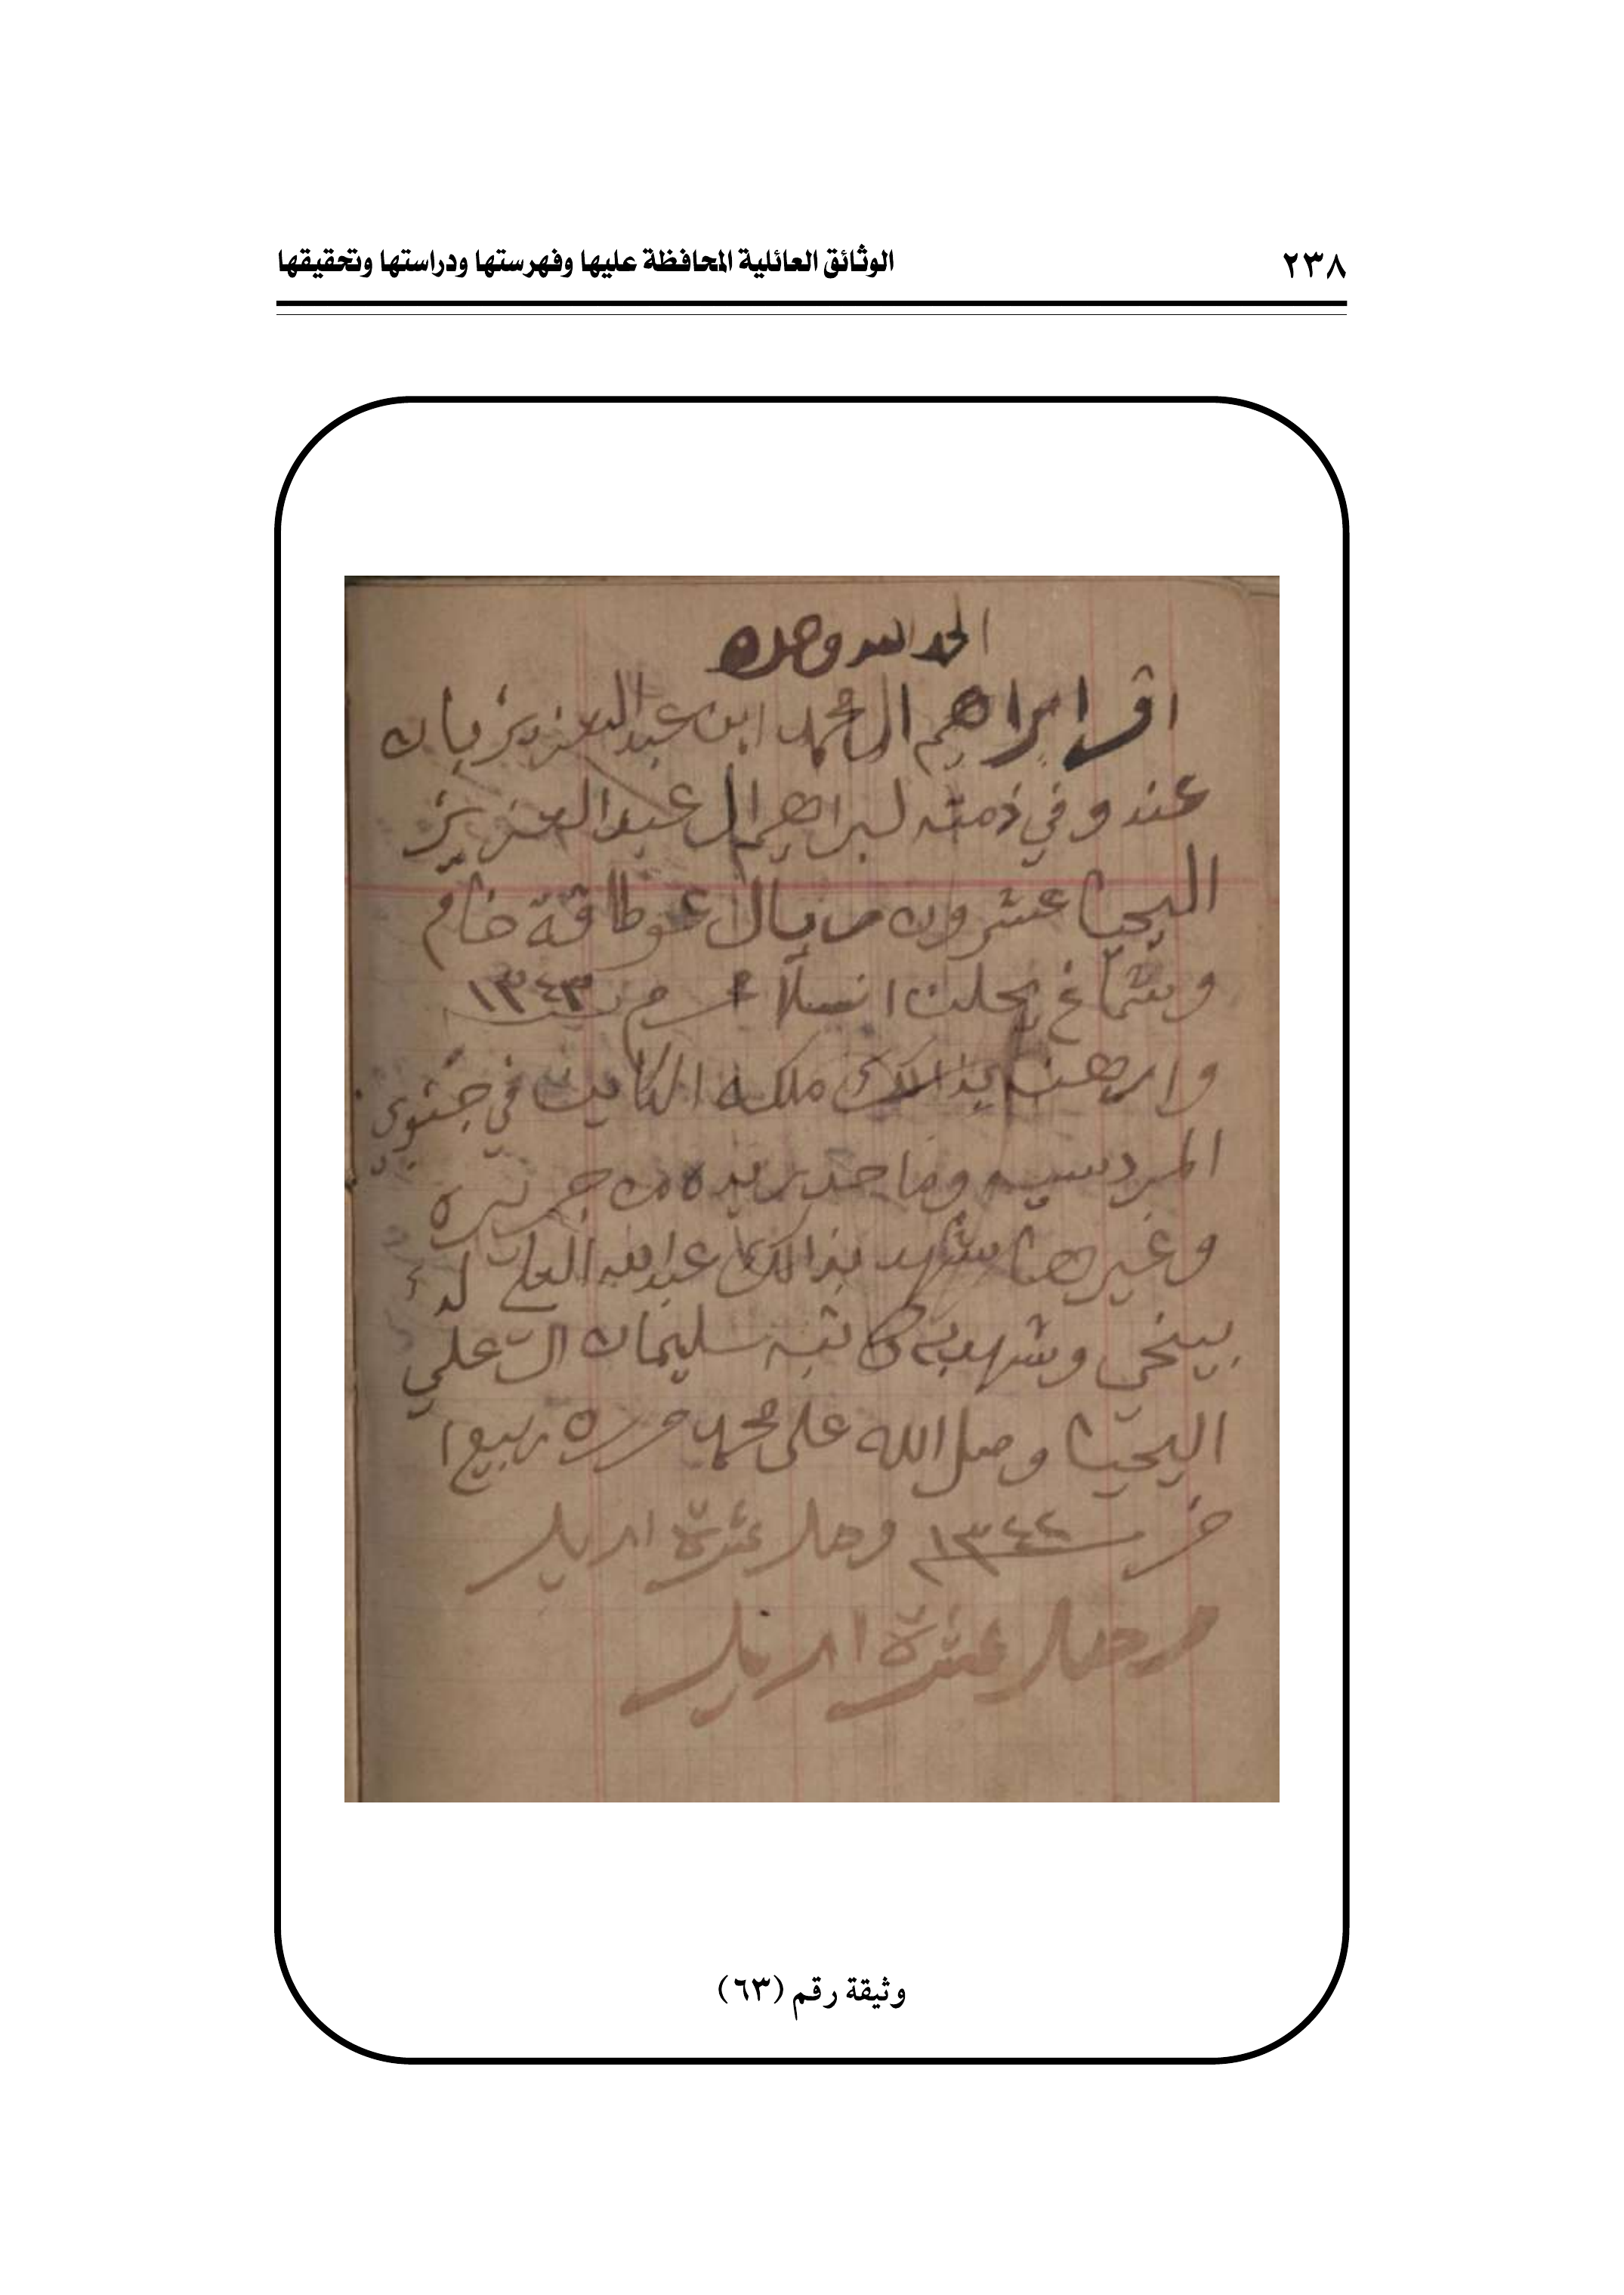 ٢٣٨ الوثائق العائلية المحافظة عليها وفهرستها ودراستها وتحقيقها
الحمد لله وحده
اقر ابراهيم ال محمد ابن عبدالعزيز بان
عند وفي ذمته لبراهيم ال عبدالعزيز
اليحيا عشرون ريال عوض طاقة خام
وشماغ يحلن انسلاخ محرم سنة ١٣٤٣
وارهنه بذالك ملكه الكاين في جنوبي
المردسيه وما حدر يده من جريره
وغيرها شهد بذالك عبدالله العلي
وشهد به كاتبه سليمان ال علي
اليحيا وصل الله على محمد حرره ربيع ا
خر سنة ١٣٤٢ وصل عشرة اريل
وصل عشرة اريل
وثيقة رقم (٦٣)